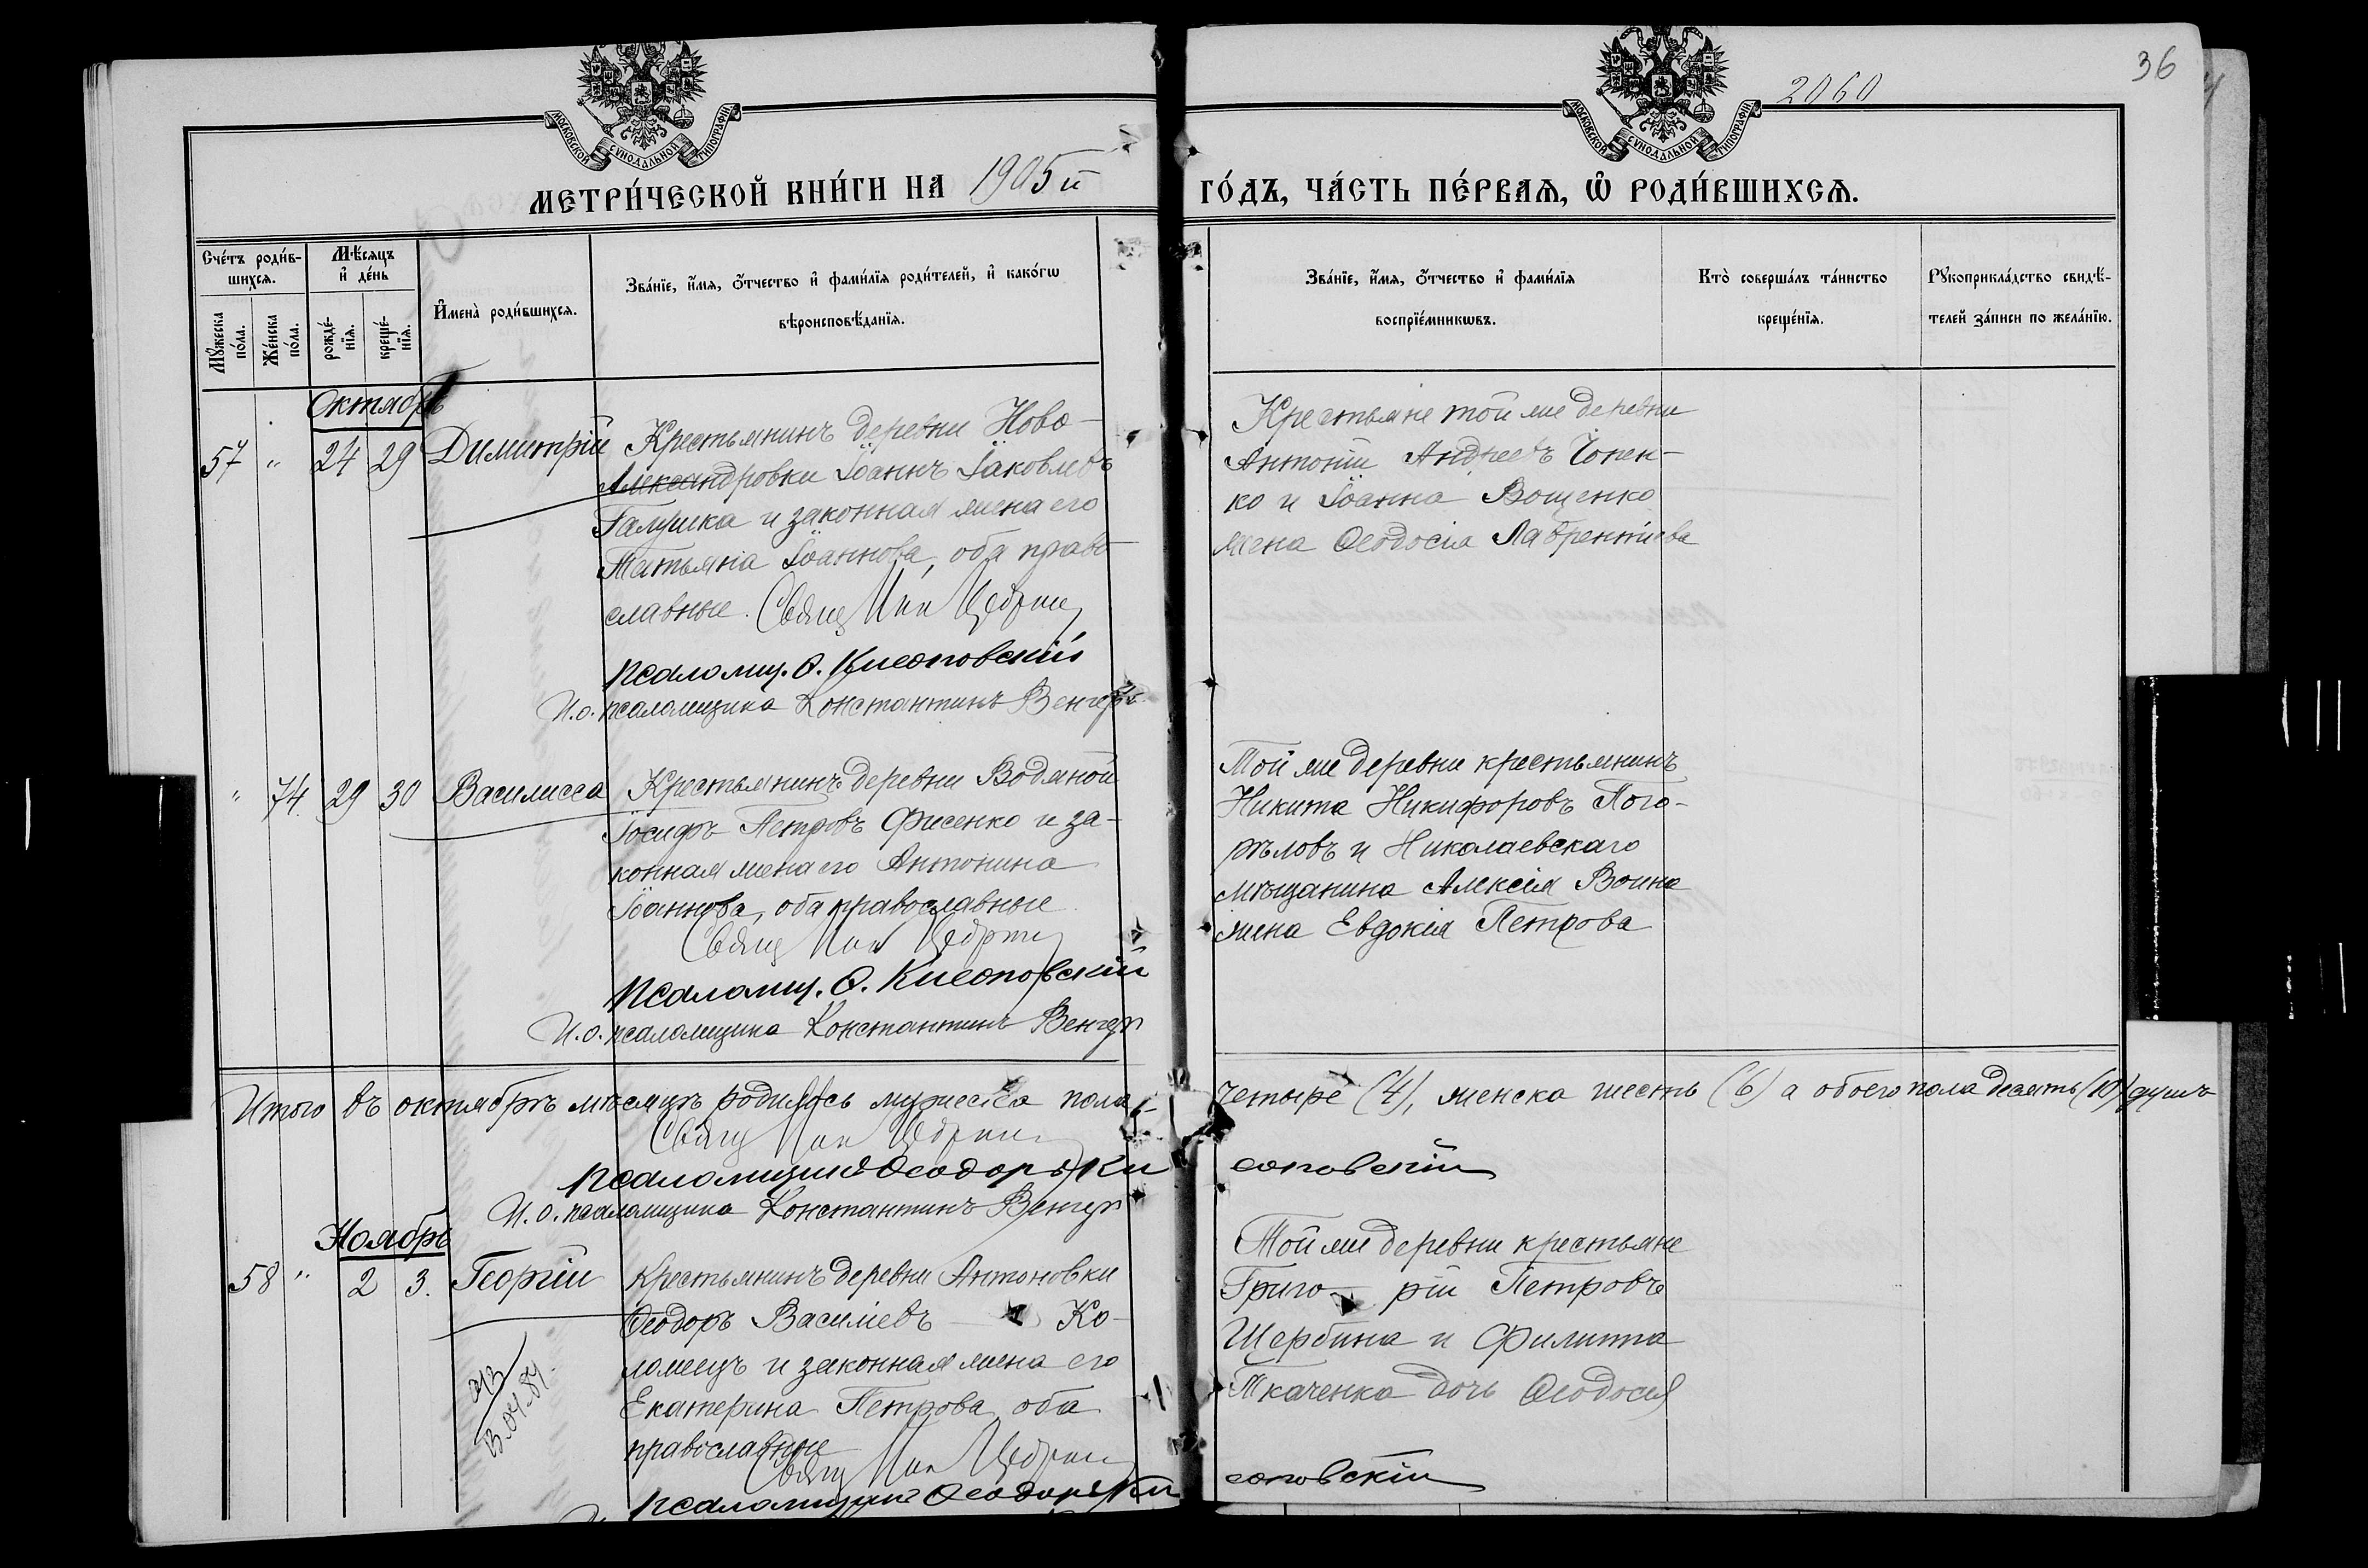 36
2060
МОСКОВСКОЙ СѴНОДАЛЬНОЙ ТИПОГРАФІИ.
МОСКОВСКОЙ СѴНОДАЛЬНОЙ ТИПОГРАФІИ.
МЕТРИ́ЧЕСКОЙ КНИ́ГИ НА 1905й ГО́ДЪ, ЧА́СТЬ ПЕ́РВАѦ, Ѽ РОДИ́ВШИХСѦ.
Сче́тъ роди́в-
шихсѧ.
Мꙋ́жеска по́ла.
Же́нска по́ла.
Мѣ́сѧцъ
и҆ де́нь
рожде́-
нїѧ.
креще́-
нїѧ.
И҆мена̀ роди́вшихсѧ.
Зва́нїе, и҆́мѧ, ѻ҆́тчество и҆ фами́лїѧ роди́телей, и҆ како́гѡ
вѣроисповѣ́данїѧ.
Зва́нїе, и҆́мѧ, ѻ҆́тчество и҆ фами́лїѧ
воспрїе́мникѡвъ.
Кто̀ соверша́лъ та́инство
креще́нїѧ.
Рꙋкоприкла́дство свидѣ́-
телей за́писи по жела́нїю.
Октябрь
57 " 24 29 Димитрій
Крестьянинъ деревни Ново-
Александровки Іоаннъ Іаковлевъ
Галушка и законная жена его
Татьяна Іоаннова, оба право-
славные. Свящ
Псаломщ. Ѳ.
И.о. псаломщика Константинъ Венгеръ
Крестьяне той же деревни
Антоній Андреевъ
ко и Іоанна Вощенко
жена Ѳеодосія Лаврентіева
" 74. 29 30 Василисса
Крестьянинъ деревни Водяной
Іосифъ Петровъ Фисенко и за-
конная жена его Антонина
Іоаннова, оба православные
Свящ
Псаломщ. Ѳ.
И.о. псаломщика Константинъ Венгеръ
Той же деревни крестьянинъ
Никита Никифоровъ Пого-
рѣловъ и Николаевскаго
мѣщанина Алексія Воина
жена Евдокія Петрова
Итого въ октябрѣ мѣсяцѣ родилось мужеска пола – четыре (4), женска шесть (6) а обоего пола десять (10) душъ
Свящ
Псаломщикъ Ѳеодоръ
И.о. псаломщика Константинъ Венгеръ
Ноябрь
58 " 2 3. Георгій
Крестьянинъ деревни Антоновки
Ѳеодоръ Василіевъ Ко-
ломеецъ и законная жена его
Екатерина Петрова, оба
православные
Свящ
Псаломщикъ Ѳеодоръ
Той же деревни крестьяне
Григо- рій Петровъ
Щербина и Филиппа
Ткаченка дочь Ѳеодосія